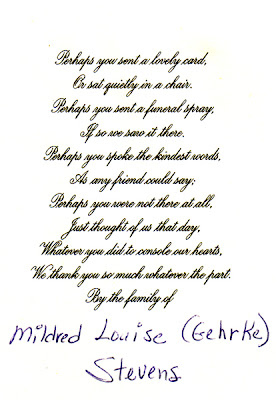 Perhaps you sent a lovely card,
Or sat quietly in a chair.
Perhaps you sent a funeral spray,
If so we saw it there.
Perhaps you spoke the kindest words,
As any friend could say;
Perhaps you were not there at all,
Just thought of us that day,
Whatever you did to console our hearts,
We thank you so much whatever the part.
By the family of
Mildred Louise (Gehrke)
Stevens